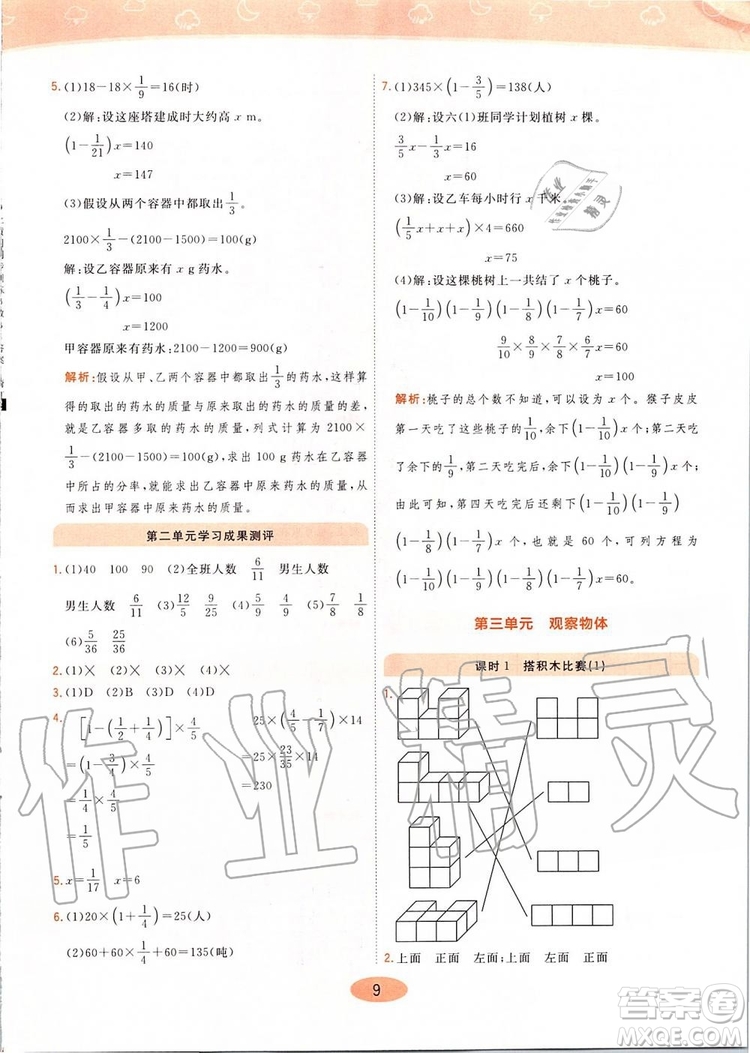 5.(1)18-18×1/9=16(时)
(2)解:设这座塔建成时大约高 x m。
(1-1/21)x=140
x=147
(3)假设从两个容器中都取出1/3。
2100×1/3-(2100-1500)=100(g)
解:设乙容器原来有 x g药水。
(1/3-1/4)x=100
x=1200
甲容器原来有药水:2100-1200=900(g)
解析:假设从甲、乙两个容器中都取出1/3的药水,这样算
得的取出的药水的质量与原来取出的药水的质量的差,
就是乙容器多取的药水的质量,列式计算为2100×
1/3-(2100-1500)=100(g),求出100 g药水在乙容器
中所占的分率,就可以求出乙容器中原有药水的质量,
从而求出甲容器中原有药水的质量。
第二单元学习成果测评
1.(1)40 100 90 (2)全班人数 6/11 男生人数
男生人数 6/11 (3)12/5 5/9 (4)4/5 (5)1/4
(6)5/36 25/36
2.(1)× (2)× (3)× (4)×
3.(1)D (2)B (3)A (4)D
4. [1-(1/2+1/4)]×4/5
=(1-3/4)×4/5
=1/4×4/5
=1/5
25×(4/5-1/7)×14
=25×23/35×14
=230
5. x=1/17 x=6
6.(1)20×(1+1/4)=25(人)
(2)60+60×1/4+60=135(吨)
7.(1)345×(1-3/5)=138(人)
(2)解:设六(1)班同学计划植树 x 棵。
3/5x-1/3x=16
x=60
(3)解:设乙车每小时行 x 千米。
(1/5x+x)×4=660
x=75
(4)解:设这棵桃树上一共结了 x 个桃子。
(1-1/10)(1-1/9)(1-1/8)(1-1/7)x=60
9/10×8/9×7/8×6/7x=60
x=100
解析:桃子的总个数不知道,可以设为 x 个。猴子皮皮
第一天吃了这些桃子的1/10,余下(1-1/10)x;第二天吃
了余下的1/9,第二天吃完后,余下(1-1/10)(1-1/9)x……
由此可知,第四天吃完后,余下(1-1/10)(1-1/9)
(1-1/8)(1-1/7)x,就是余下的60个,可列方程为
(1-1/10)(1-1/9)(1-1/8)(1-1/7)x=60。
第三单元 观察物体
课时1 搭积木比赛(1)
1.
2.上面 正面 左面;左面 上面 正面
9
作业精灵
答案圈
MXQE.COM